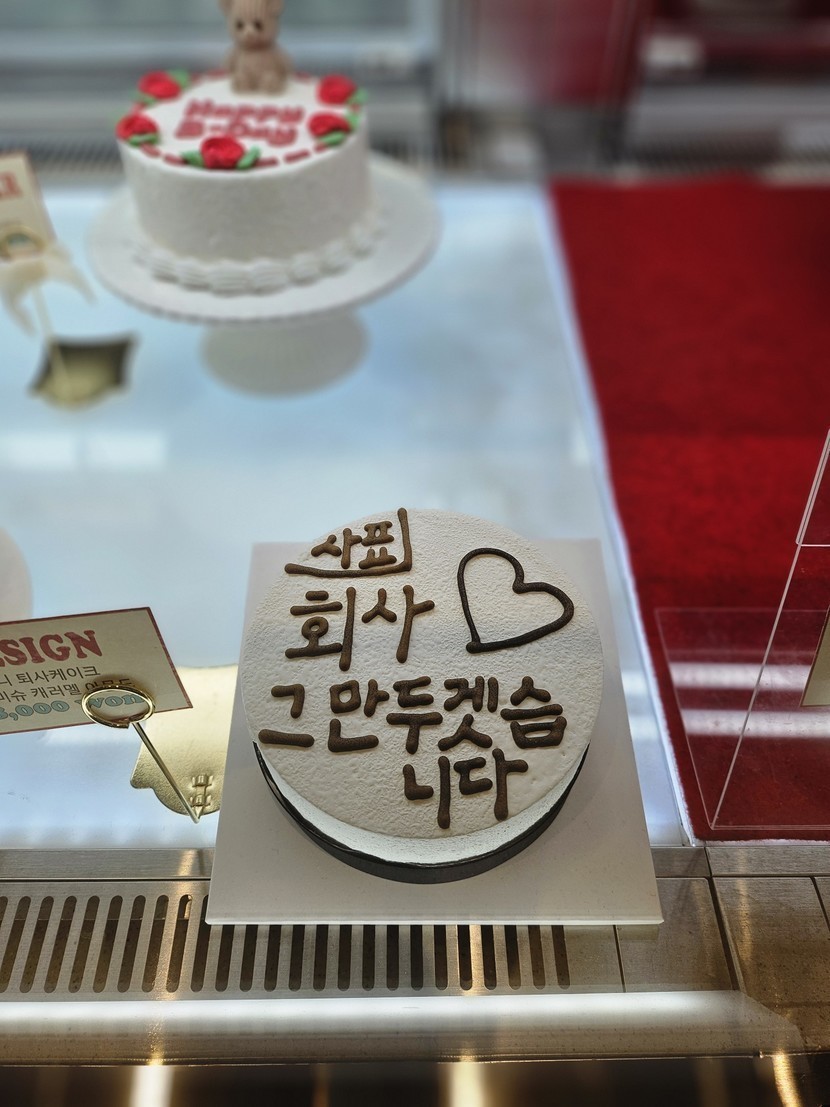 Happy
B-Day
사표
회사
그만두겟습
니다
ESIGN
니 퇴사케이크
미슈 캐러멜
,000 won